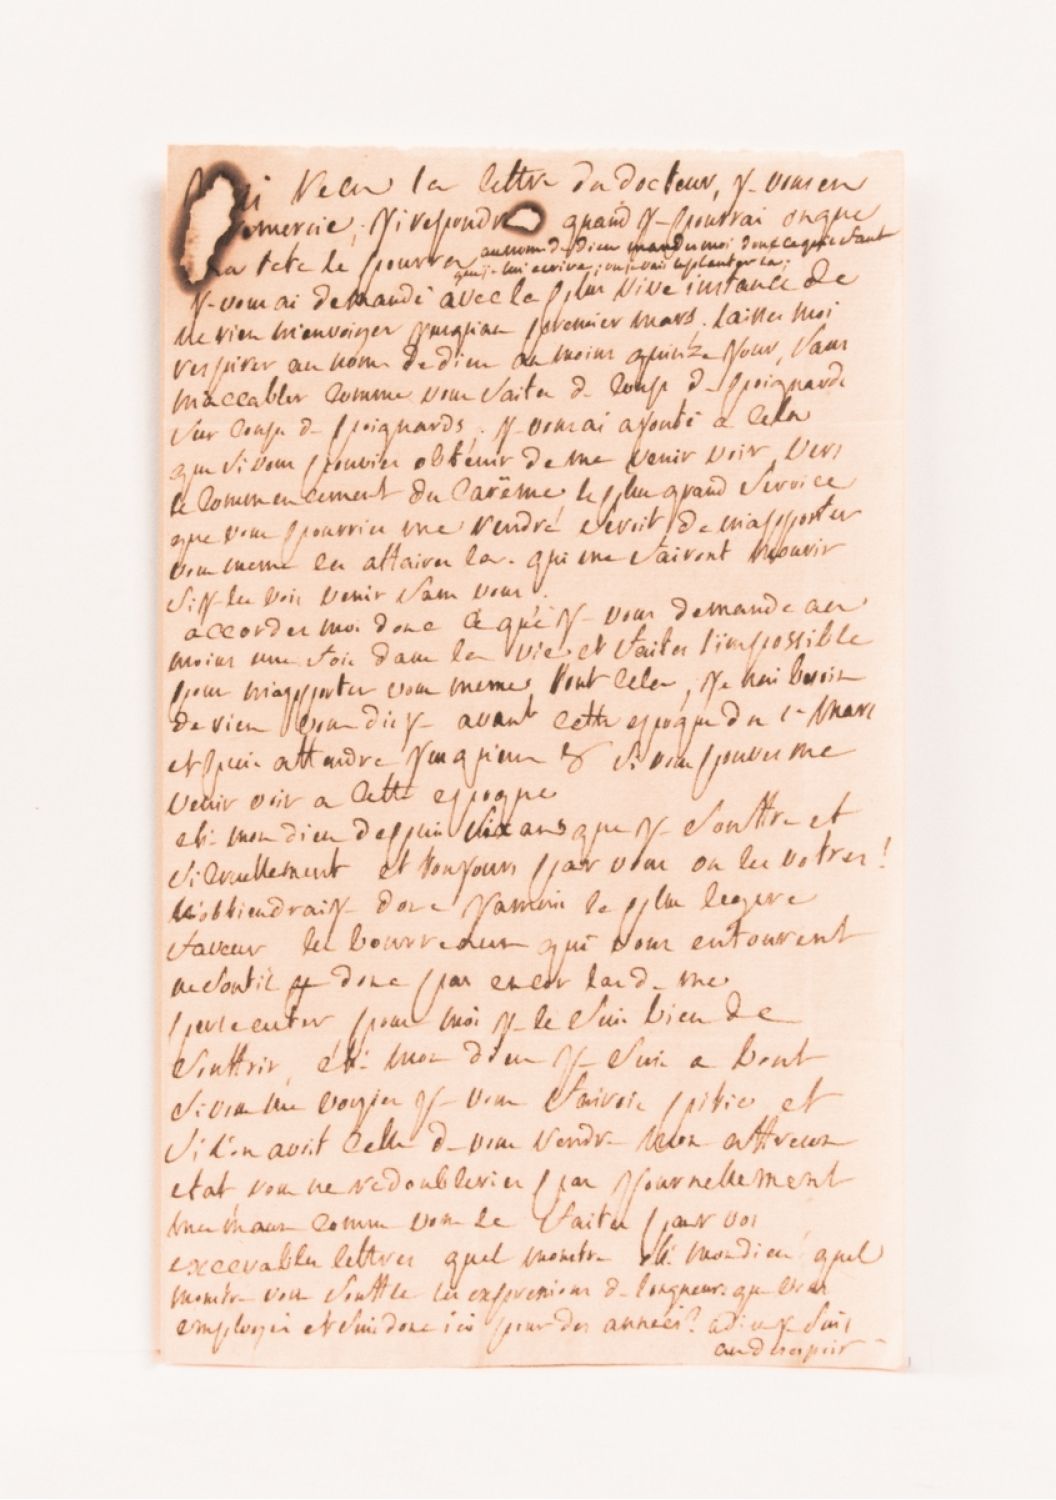 ai recu la lettre du docteur, j- vous en
remercie, j'i repondre quand j- pourrai ou que
la tete le pourra au nom de dieu mandes moi donc ce que il faut
que j- lui ecrive; ou je vais le planter la;
j- vous ai demandé avec la plus vive instance de
ne rien m'envoiyer jusqu'au premier mars. laisses moi
respirer au nom de dieu au moins quinze jour, sans
m'accabler comme vous faites d- coups d- poignards
sur coups d- poignards; j- vous ai ajouté a cela
que si vous pouvies obtenir de me venir voir, vers
le commencement du carême, le plus grand service
que vous pourries me rendre seroit de m'apporter
vous meme les affaires la. qui me fairont mourir
si j- les vois venir sans vous.
accordes moi donc ce que j- vous demande au
moins une fois dans la vie et faites l'impossible
pour m'apporter vous meme, tout cela, je n'ai besoin
de rien vous dis j- avant cette epoque du 1er mars
et puis attendre jusqu'au 8 si vous pouves me
venir voir a cette epoque
eh- mon dieu depuis six ans que j- souffre et
si cruellement et toujours par vous ou les votres!
n'obtiendrais j- donc jamais la plus legere
faveur les bourreaux qui vous entourent
ne sont il donc pas encor las d- me
persecuter pour moi j- le suis bien de
souffrir, eh- mon dieu j- suis a bout
si vous me voyies j- vous fairois pitie et
si l'on avoit celle d- vous rendre mon affreux
etat vous ne redoubleries pas journellement
mes maux comme vous le faites par vos
execrables lettres quel monstre oh- mon dieu quel
monstre vous souffle les expressions d- longueurs que vous
employés et suis donc ici pour des années? adieu j- suis
au desespoir